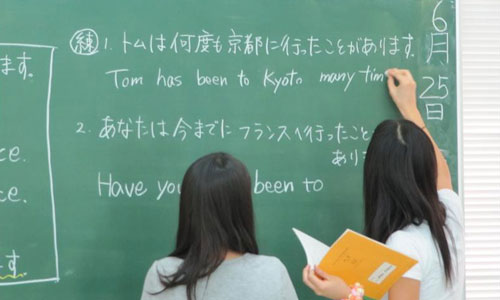 ます。
ce.
ce.
です
練 1. トムは何度も京都に行ったことがあります。
Tom has been to Kyoto many tim
2. あなたは今までにフランスへ行ったこと
あり
Have you been to
6月25日